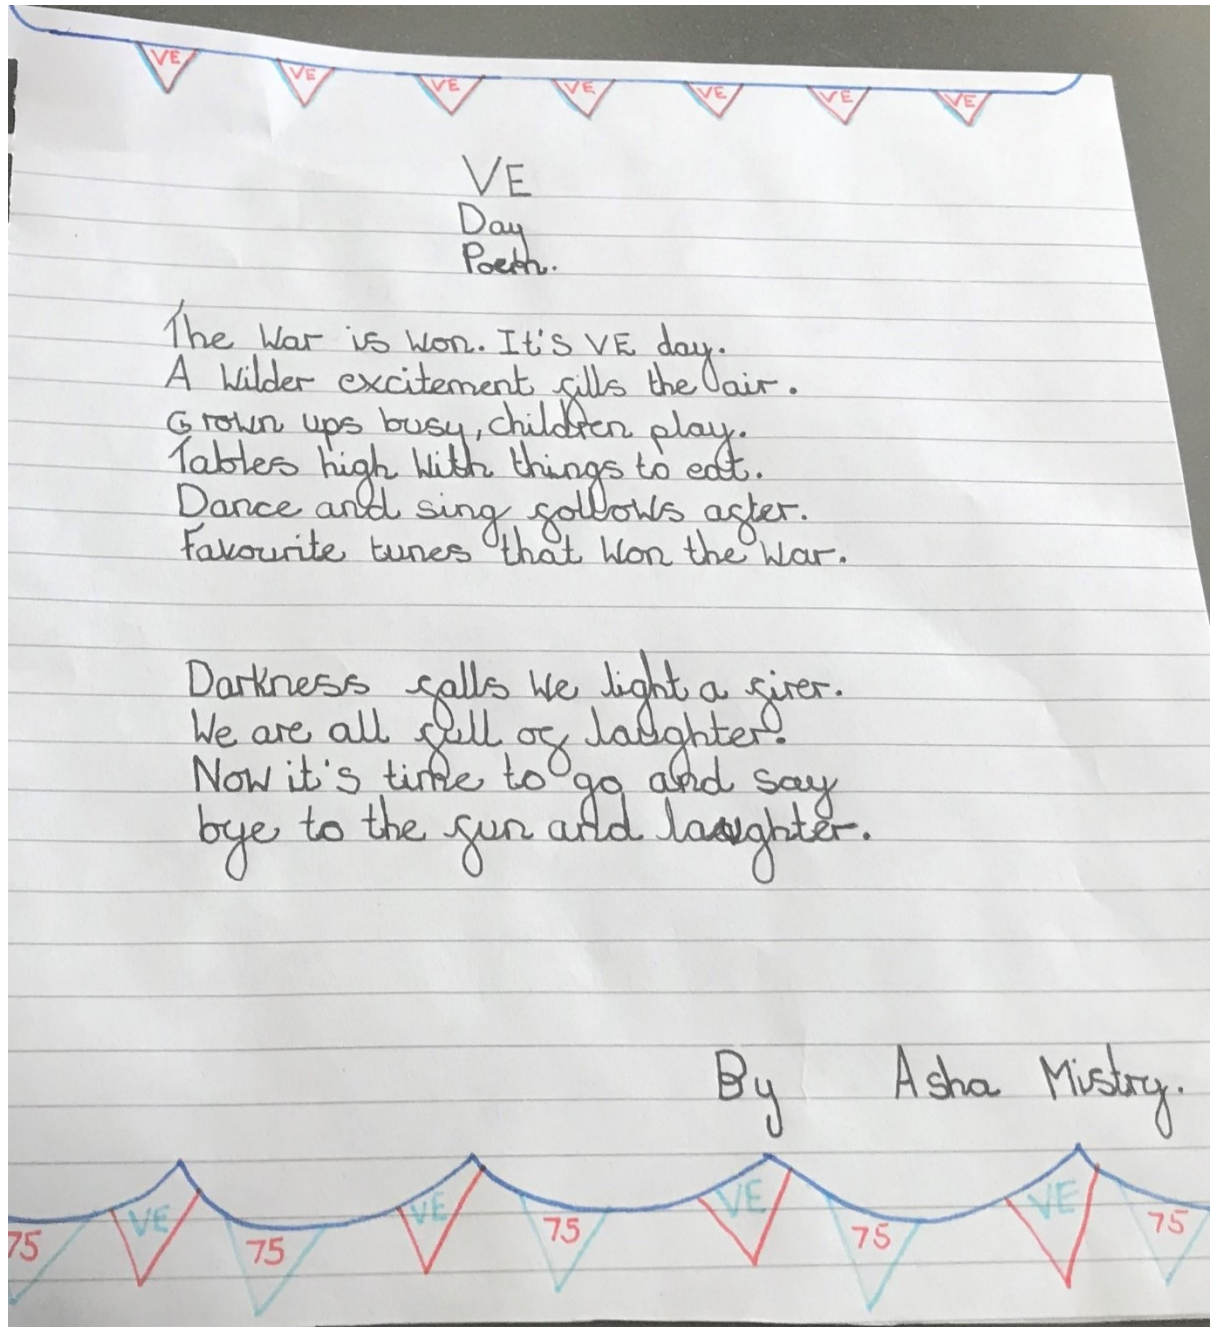 VE VE VE VE VE VE VE
VE
Day
Poem.
The War is won. It's VE day.
A wilder excitement fills the air.
Grown ups busy, children play.
Tables high with things to eat.
Dance and sing follows after.
Favourite tunes that won the war.
Darkness falls we light a firer.
We are all full of laughter.
Now it's time to go and say
bye to the fun and laughter.
By Asha Mistry.
75 VE 75 VE 75 VE 75 VE 75